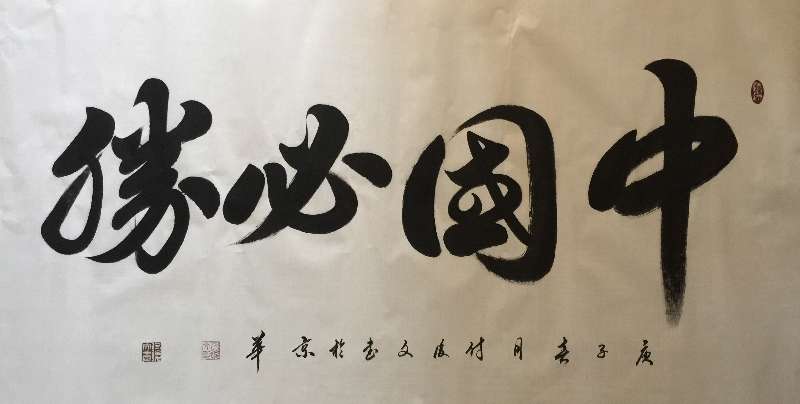 中國必勝
庚子春月付俊文书於京華